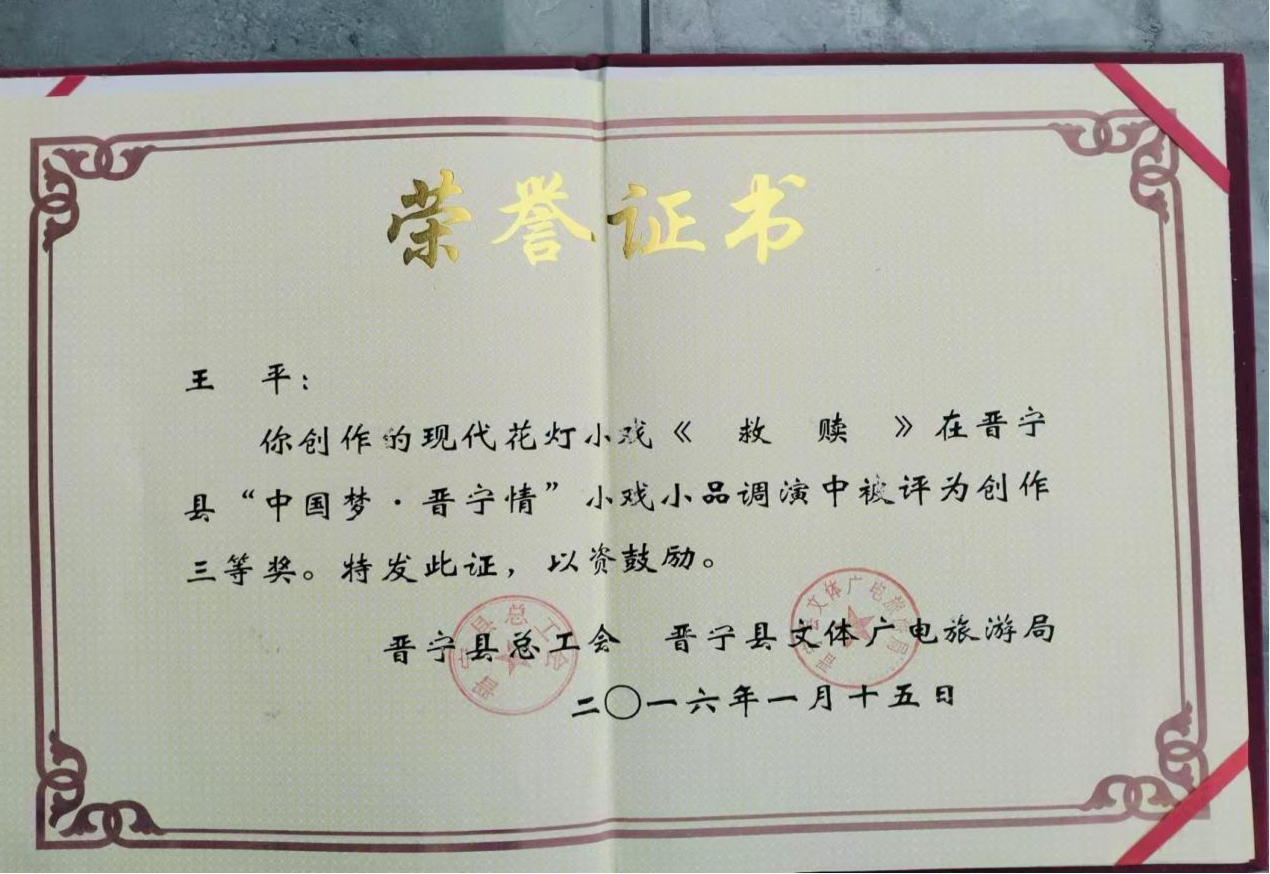 荣誉证书
王 平：
你创作的现代花灯小戏《 救 赎 》在晋宁
县“中国梦·晋宁情”小戏小品调演中被评为创作
三等奖。特发此证，以资鼓励。
晋宁县总工会 晋宁县文体广电旅游局
二〇一六年一月十五日
晋宁县总工会
晋宁县文体广电旅游局